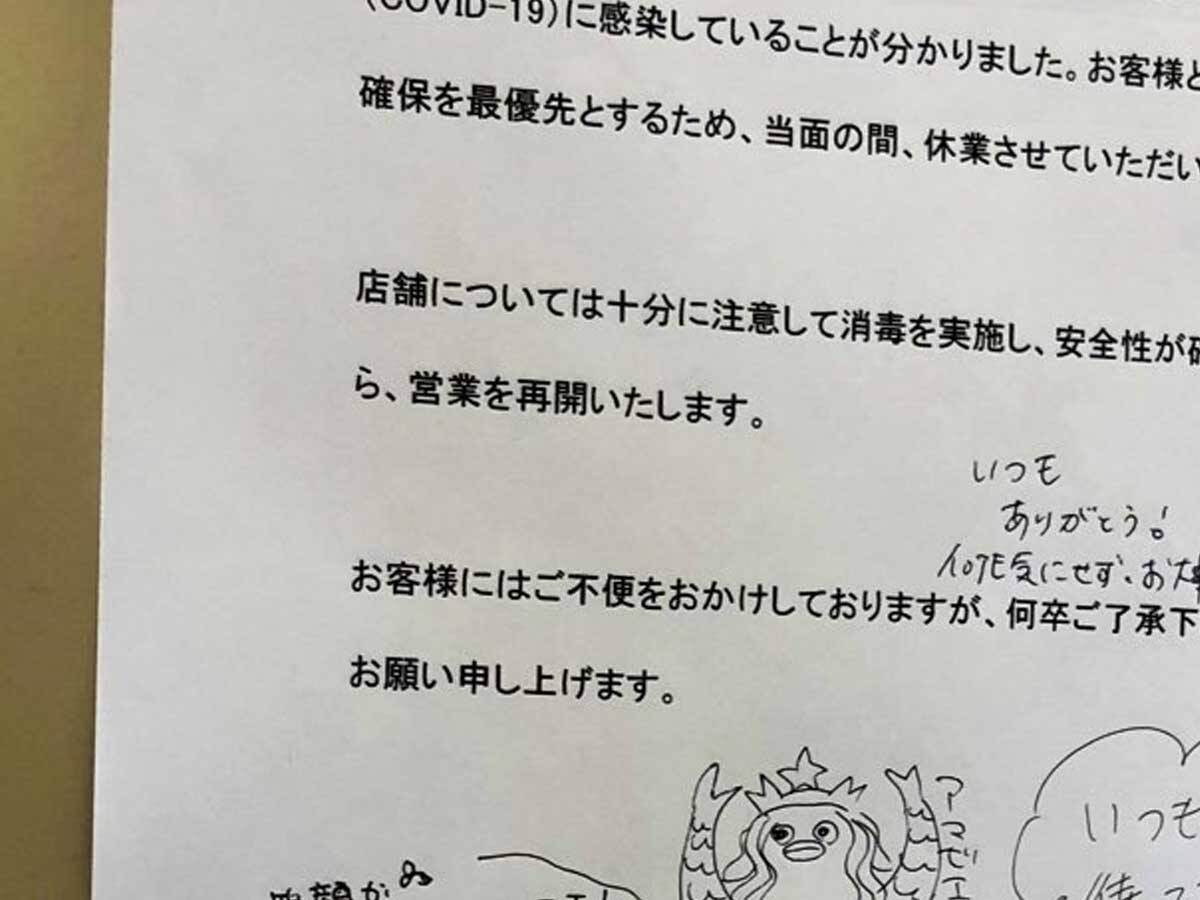 （COVID-19）に感染していることが分かりました。お客様と
確保を最優先とするため、当面の間、休業させていただい
店舗については十分に注意して消毒を実施し、安全性が確
ら、営業を再開いたします。
いつも
ありがとう！
気にせず、お大
お客様にはご不便をおかけしておりますが、何卒ご了承下
お願い申し上げます。
アマビエ
いつも
待って
笑顔が